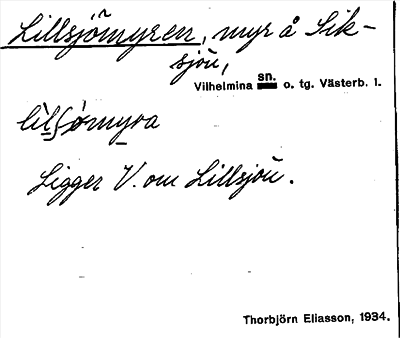 Lillsjönmyren, myr å Sik-
sjön,
Vilhelmina sn. o. tg. Västerb. l.
lìlʃømyra
Ligger V. om Lillsjön.
Thorbjörn Eliasson, 1934.